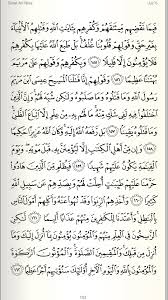 Surah An-Nisa
Juz' 6
فَبِمَا نَقْضِهِم مِّيثَٰقَهُمْ وَكُفْرِهِم بِـَٔايَٰتِ ٱللَّهِ وَقَتْلِهِمُ ٱلْأَنۢبِيَآءَ
بِغَيْرِ حَقٍّ وَقَوْلِهِمْ قُلُوبُنَا غُلْفٌۢ بَلْ طَبَعَ ٱللَّهُ عَلَيْهَا بِكُفْرِهِمْ
فَلَا يُؤْمِنُونَ إِلَّا قَلِيلًا ١٥٥ وَبِكُفْرِهِمْ وَقَوْلِهِمْ عَلَىٰ مَرْيَمَ
بُهْتَٰنًا عَظِيمًا ١٥٦ وَقَوْلِهِمْ إِنَّا قَتَلْنَا ٱلْمَسِيحَ عِيسَى ٱبْنَ مَرْيَمَ
رَسُولَ ٱللَّهِ وَمَا قَتَلُوهُ وَمَا صَلَبُوهُ وَلَٰكِن شُبِّهَ لَهُمْ وَإِنَّ ٱلَّذِينَ
ٱخْتَلَفُوا۟ فِيهِ لَفِى شَكٍّ مِّنْهُ مَا لَهُم بِهِۦ مِنْ عِلْمٍ إِلَّا ٱتِّبَاعَ ٱلظَّنِّ
وَمَا قَتَلُوهُ يَقِينًۢا ١٥٧ بَل رَّفَعَهُ ٱللَّهُ إِلَيْهِ وَكَانَ ٱللَّهُ عَزِيزًا حَكِيمًا
١٥٨ وَإِن مِّنْ أَهْلِ ٱلْكِتَٰبِ إِلَّا لَيُؤْمِنَنَّ بِهِۦ قَبْلَ مَوْتِهِۦ وَيَوْمَ
ٱلْقِيَٰمَةِ يَكُونُ عَلَيْهِمْ شَهِيدًا ١٥٩ فَبِظُلْمٍ مِّنَ ٱلَّذِينَ هَادُوا۟
حَرَّمْنَا عَلَيْهِمْ طَيِّبَٰتٍ أُحِلَّتْ لَهُمْ وَبِصَدِّهِمْ عَن سَبِيلِ ٱللَّهِ
كَثِيرًا ١٦٠ وَأَخْذِهِمُ ٱلرِّبَوٰا۟ وَقَدْ نُهُوا۟ عَنْهُ وَأَكْلِهِمْ أَمْوَٰلَ ٱلنَّاسِ
بِٱلْبَٰطِلِ وَأَعْتَدْنَا لِلْكَٰفِرِينَ مِنْهُمْ عَذَابًا أَلِيمًا ١٦١ لَّٰكِنِ
ٱلرَّٰسِخُونَ فِى ٱلْعِلْمِ مِنْهُمْ وَٱلْمُؤْمِنُونَ يُؤْمِنُونَ بِمَآ أُنزِلَ إِلَيْكَ
وَمَآ أُنزِلَ مِن قَبْلِكَ وَٱلْمُقِيمِينَ ٱلصَّلَوٰةَ وَٱلْمُؤْتُونَ ٱلزَّكَوٰةَ
وَٱلْمُؤْمِنُونَ بِٱللَّهِ وَٱلْيَوْمِ ٱلْءَاخِرِ أُو۟لَٰٓئِكَ سَنُؤْتِيهِمْ أَجْرًا عَظِيمًا ١٦٢
103